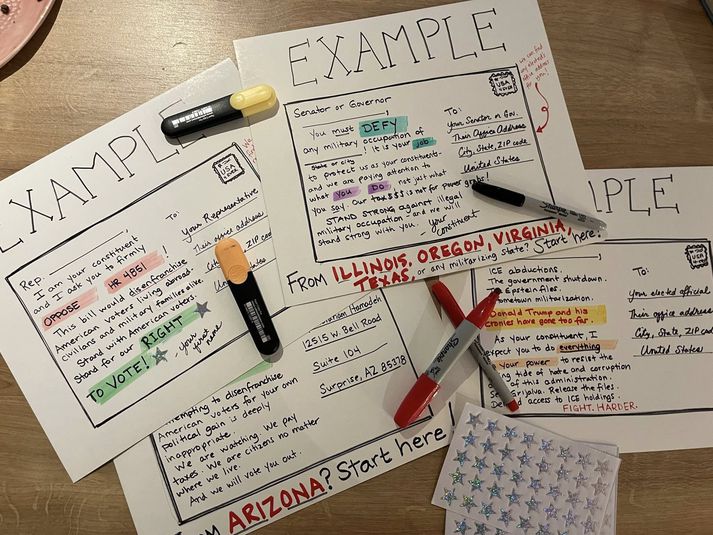 EXAMPLE
we can find
for you!
USA
Senator or Governor
You must DEFY
any military occupation of
! It is your job
state or city
to protect us as your constituents.
and we are paying attention to
what YOU DO, not just what
you say. Our tax $$$ is not for power grabs!
STAND STRONG against illegal
military occupation and we will
stand strong with you.
your constituent
TO:
Your Senator or Gov.
Their Office Address
City, State, ZIP code
United States
FROM ILLINOIS, OREGON, VIRGINIA,
TEXAS, or any militarizing state? Start here!
EXAMPLE
USA
Rep.
I am your constituent
and I ask you to firmly
OPPOSE HR 4851!
This will would disenfranchise
American voters living abroad-
civilians and military families alive.
Stand with American voters.
Stand for our RIGHT
TO VOTE!
- your first name
TO:
Your Representative
Their office address
City, ZIP code
United
PLE
USA
ICE abductions.
The government shutdown.
The Epstein files.
Hometown militarization.
Donald Trump and his
cronies have gone too far.
As your constituent, I
expect you to do everything
your power to resist the
tide of hate and corruption
of this administration.
Grijalva. Release the files.
access to ICE holdings.
FIGHT. HARDER.
TO:
Your elected official
Their office address
City, State, ZIP code
United States
Hamadeh
12515 W Bell Road
Suite 104
Surprise, AZ 85378
attempting to disenfranchise
American voters for your own
political gain is deeply
inappropriate.
We are watching. We pay
taxes. We are citizens no matter
where we live.
And we will vote you out.
From ARIZONA? Start here!
Sharpie